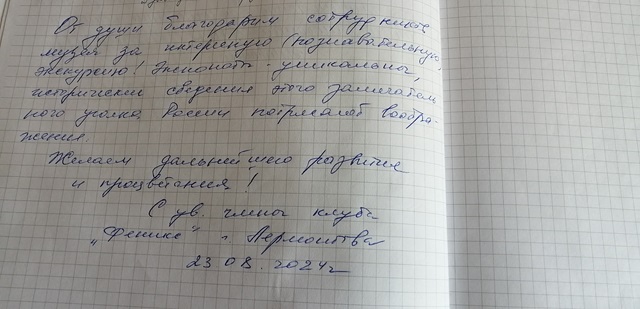 От души благодарим сотрудников
музея за интересную (познавательную)
экскурсию! Экспонаты - уникальны,
исторические сведения этого замечатель
ного уголка России потрясают вообра-
жение.
Желаем дальнейшего развития
и процветания!
С ув. члены клуба
"Феникс"
23.08.2024г